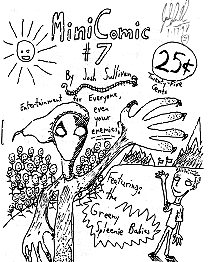 MiniComic
#7
25¢
Twenty-Five
Cents
By Josh Sullivan
Entertainment for Everyone,
even
your
enemies!
Featuring:
the
Greeny
Spleenie Bodies